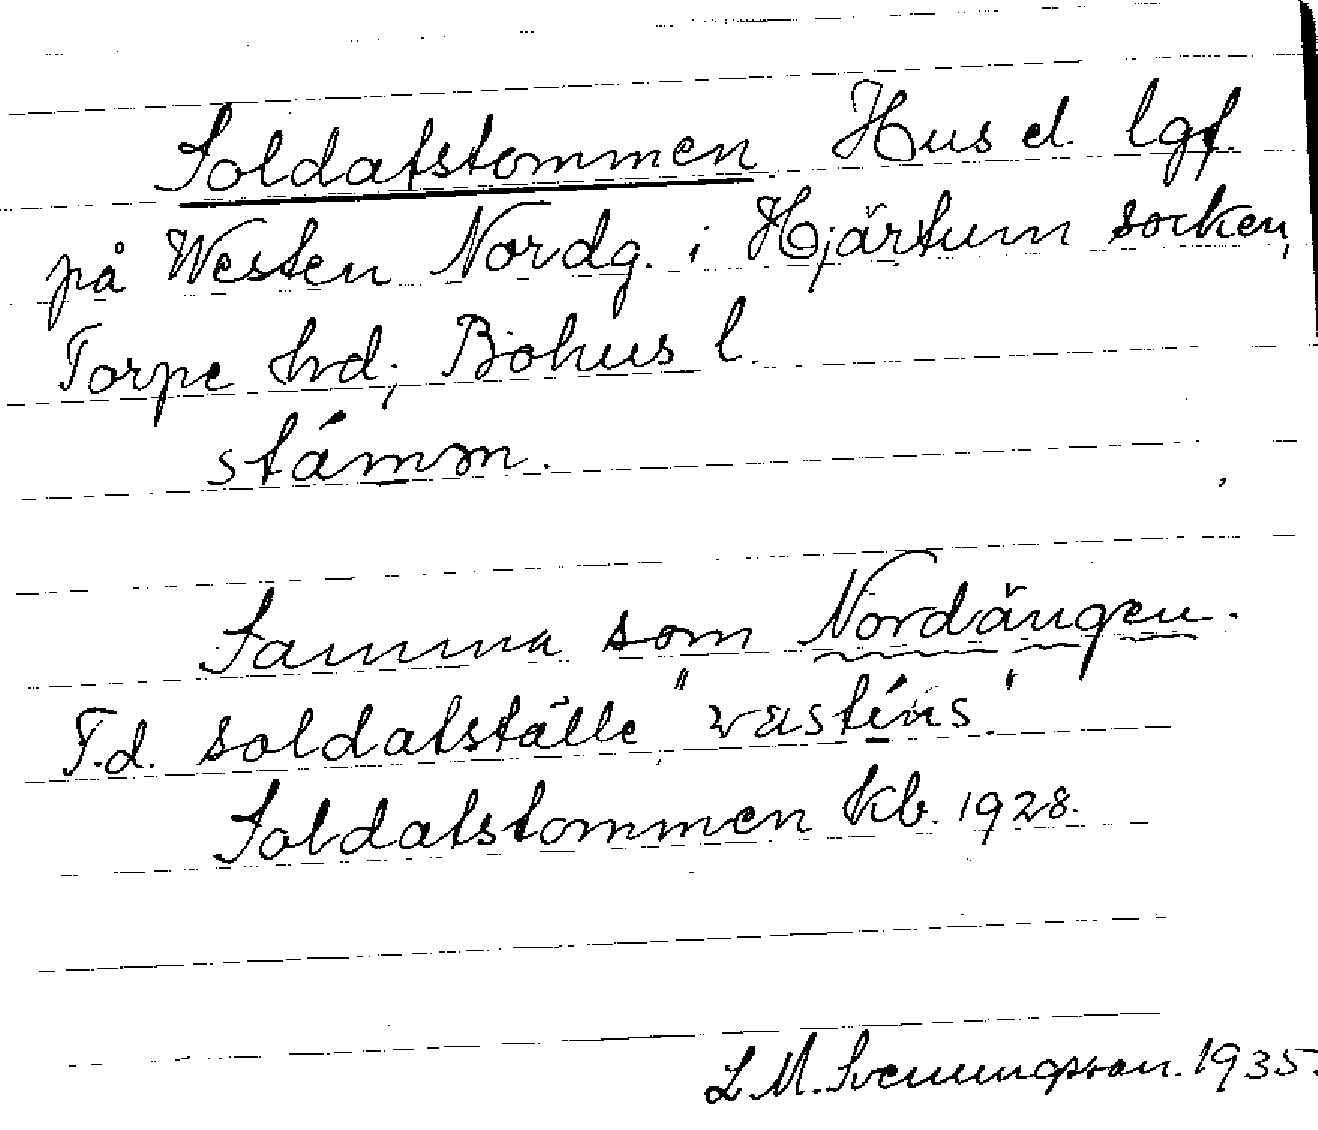 Soldatstommen Hus d. lgf.
på Westen Nordg. i Hjärtum socken,
Torpe hd; Bohus l.
stámm.
Samma som Nordängen.
F.d. soldatställe "væstíns".
Soldatstommen kb. 1928.
L.M. Svenungsson. 1935.